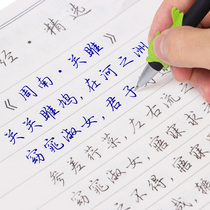 经·精选
《周南·关雎
关关雎鸠,在河之洲
窈窕淑女,君子
参差荇菜,左右流
窈窕淑女,寤寐求
不得,寤寐